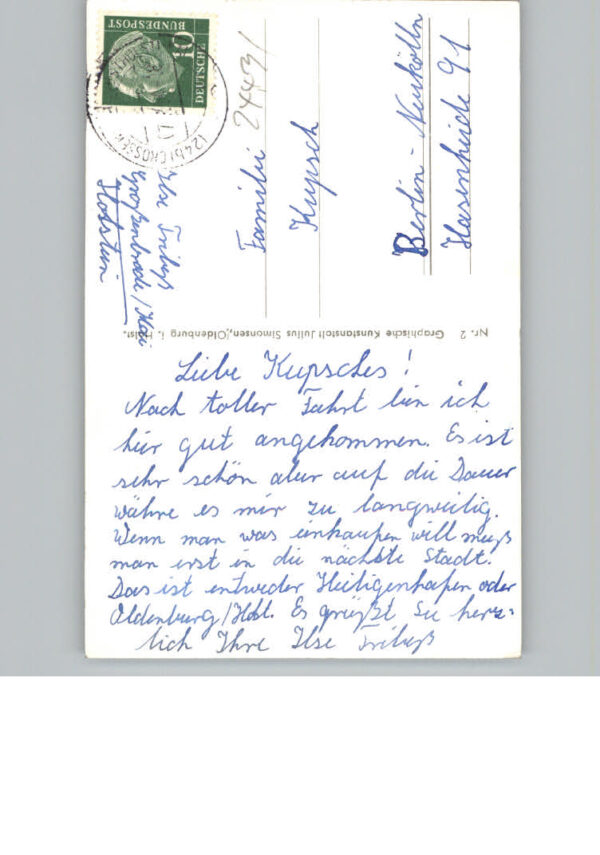 Liebe Kupsches!
Nach toller Fahrt bin ich
hier gut angekommen. Es ist
sehr schön aber auf die Dauer
währe es mir zu langweilig.
Wenn man was einkaufen will muß
man erst in die nächste Stadt.
Das ist entweder Heiligenhafen oder
Oldenburg/Holst. Es grüßt Sie herz=
lich Ihre Ilse
Familie
Kupsch
Berlin-Neukölln
Hasenheide 91
24431
Ilse
Großenbrode/
Holstein
Nr. 2 Graphische Kunstanstalt Julius Simonsen, Oldenburg i. Holst.
DEUTSCHE
BUNDESPOST
10
(24b) GROSSEN